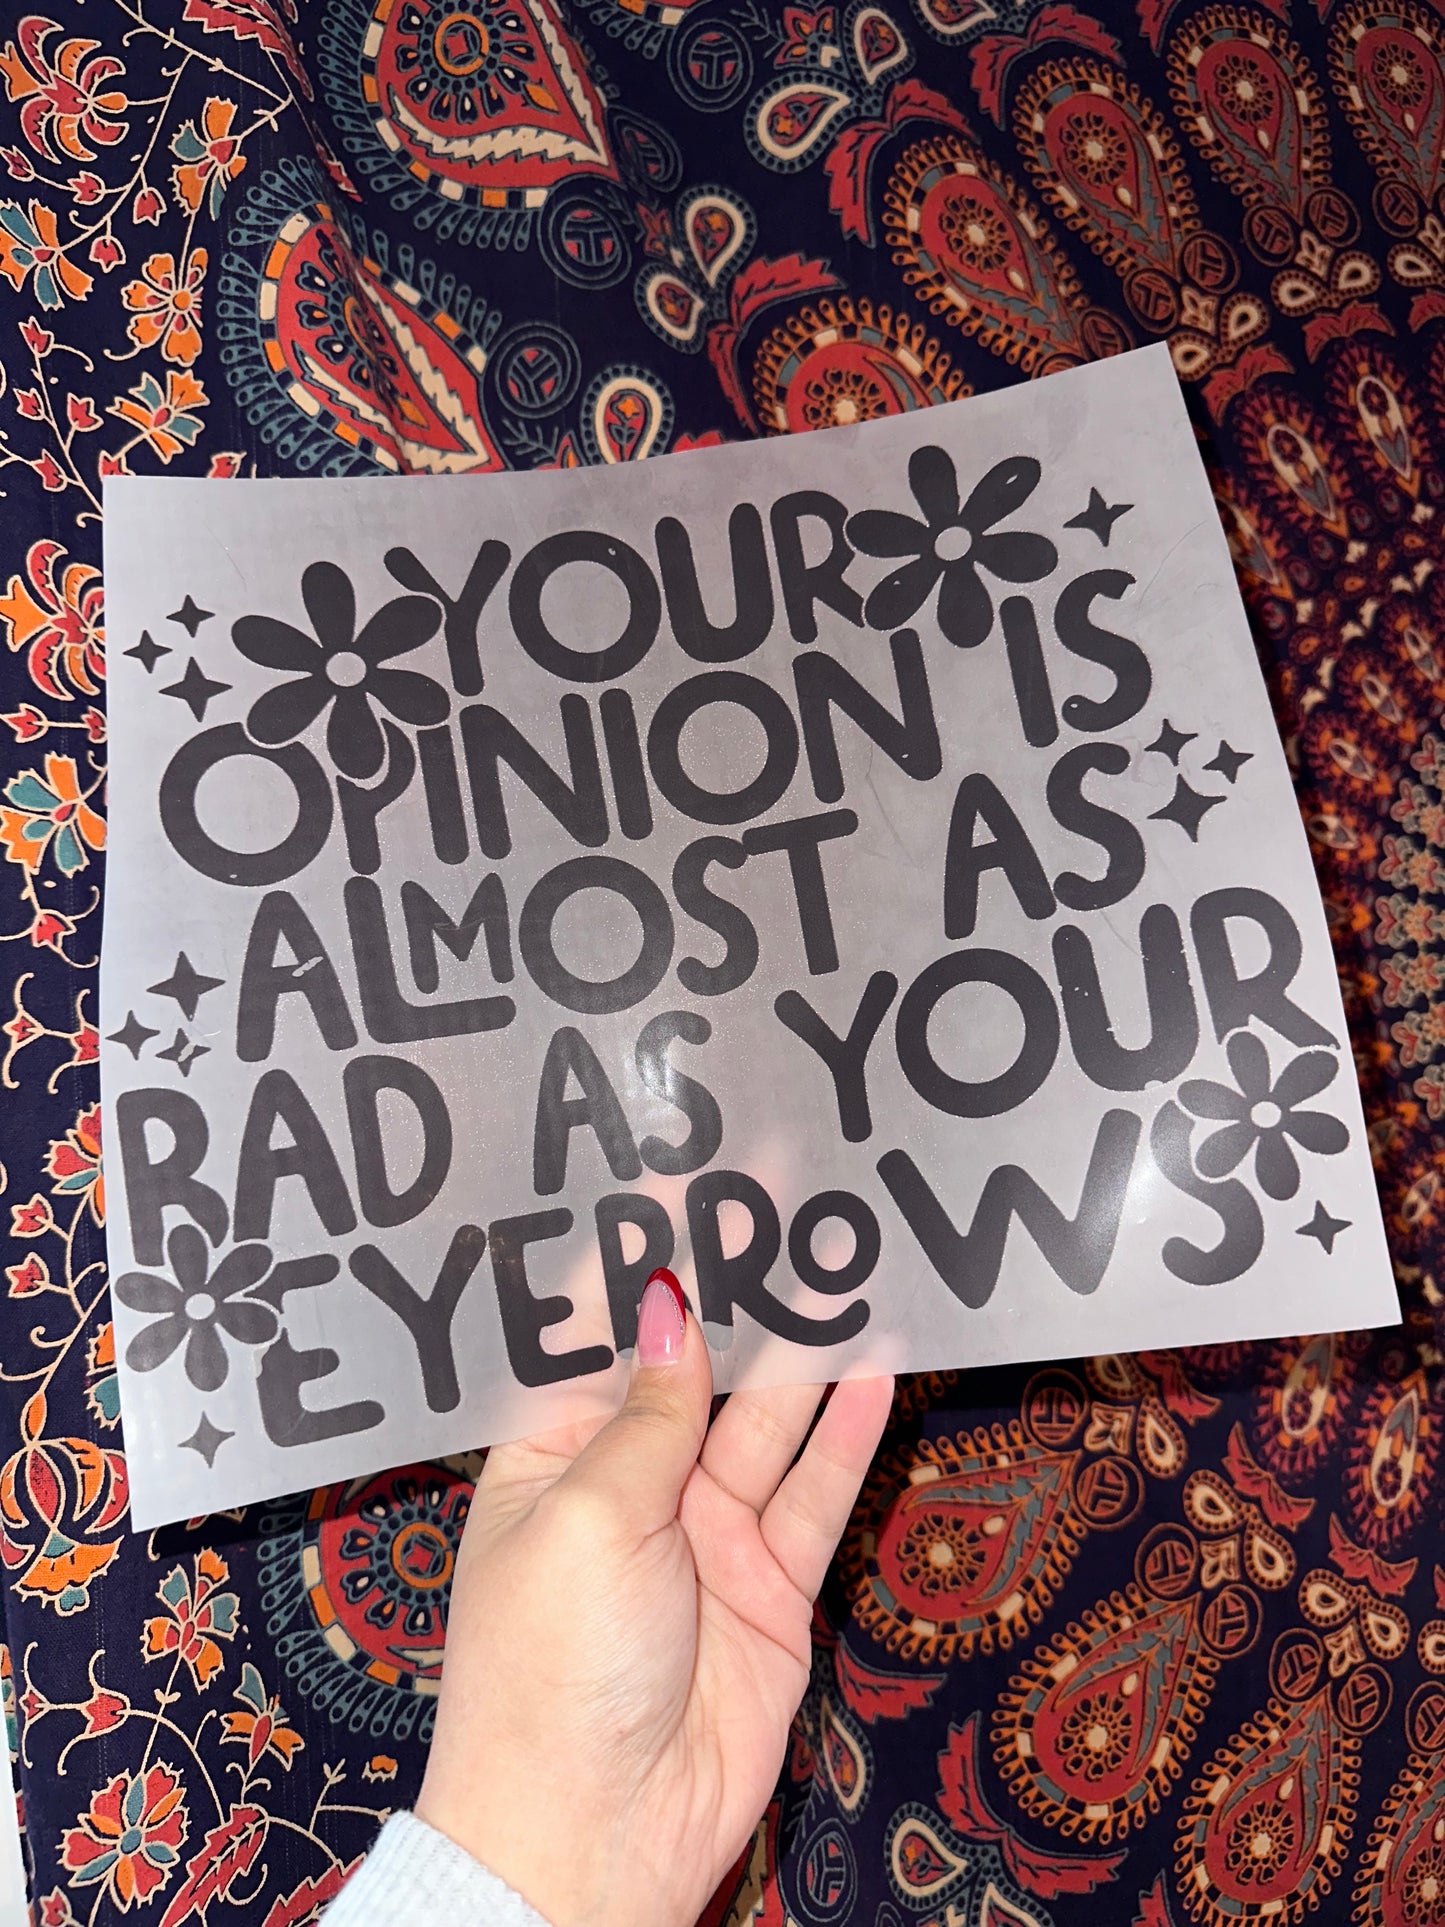 YOUR
OPINION IS
ALMOST AS
BAD AS YOUR
EYEBROWS